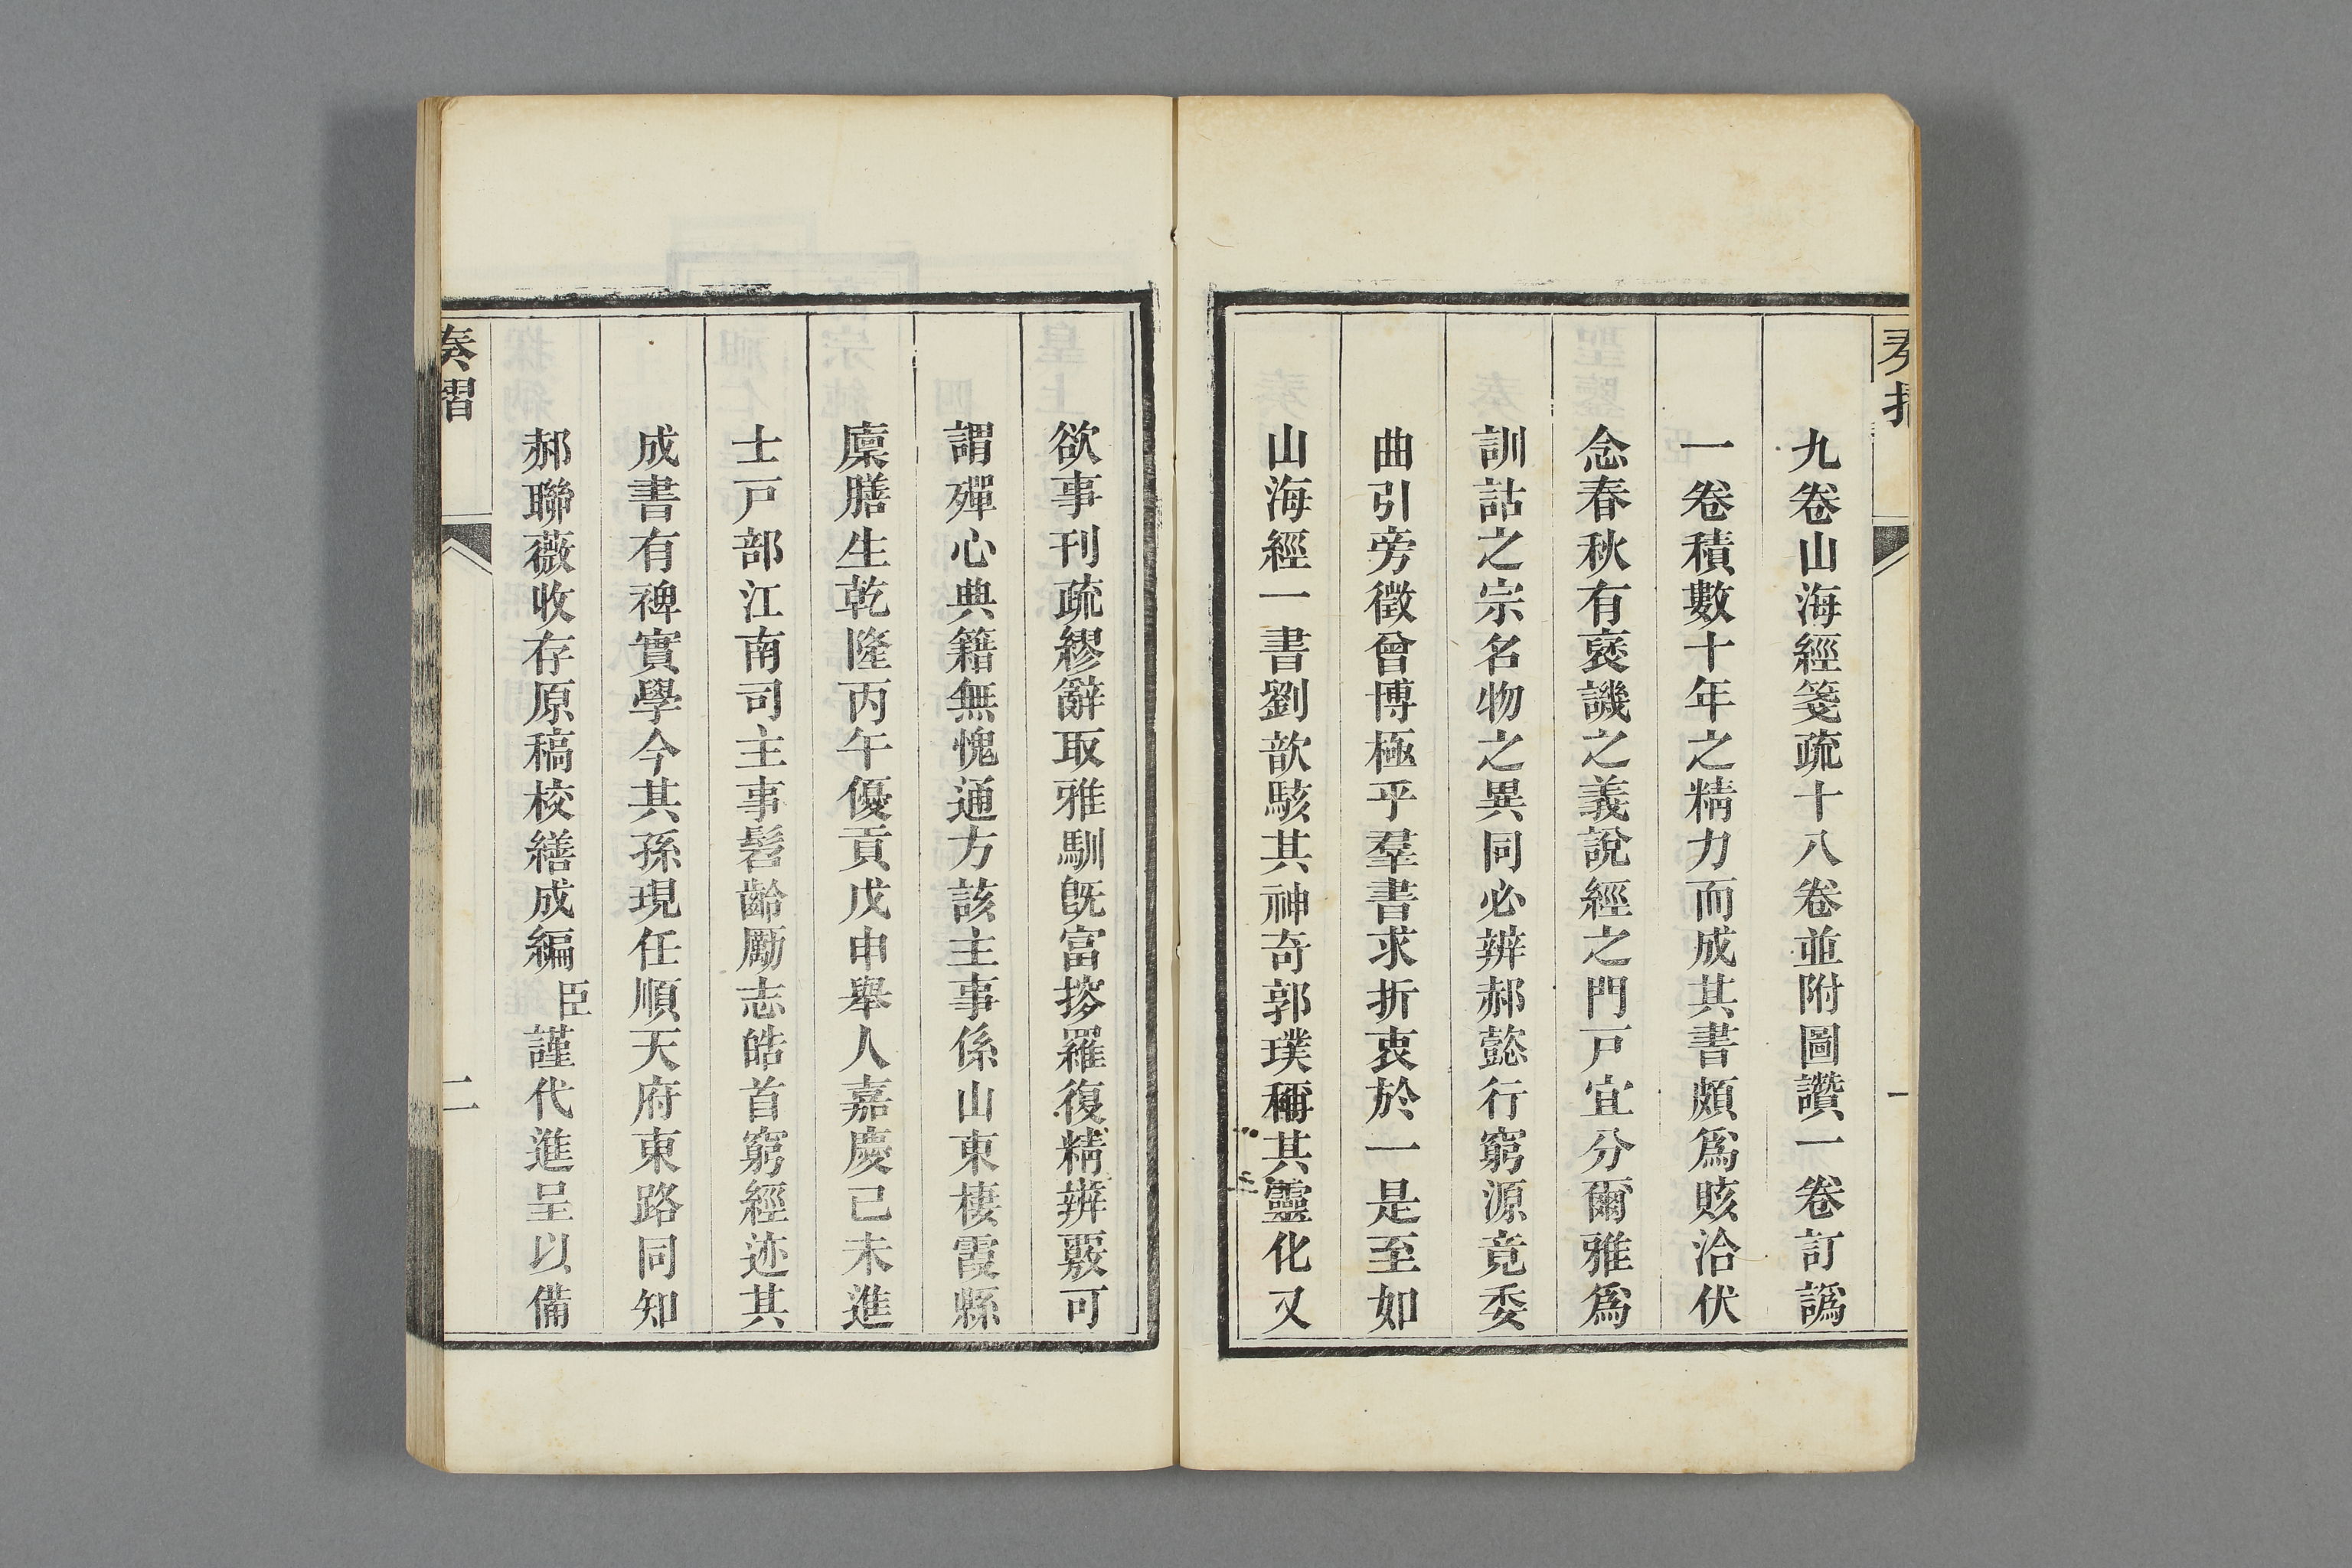 奏摺
一
九卷山海經箋疏十八卷並附圖讚一卷訂譌
一卷積數十年之精力而成其書頗爲賅洽伏
念春秋有襃譏之義說經之門戸宜分爾雅爲
訓詁之宗名物之異同必辨郝懿行窮源竟委
曲引旁徵曾博極乎羣書求折衷於一是至如
山海經一書劉歆駭其神奇郭璞稱其靈化又
欲事刊疏繆辭取雅馴旣富搜羅復精辨覈可
謂殫心典籍無愧通方該主事係山東棲霞縣
廩膳生乾隆丙午優貢戊申舉人嘉慶己未進
士戸部江南司主事髫齡勵志皓首窮經迹其
成書有禆實學今其孫現任順天府東路同知
郝聯薇收存原稿校繕成編臣謹代進呈以備
奏摺
二